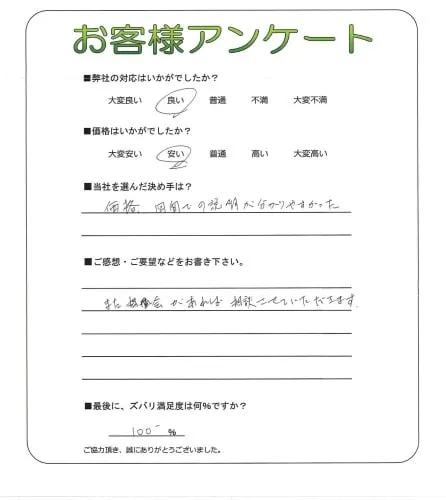 お客様アンケート
■弊社の対応はいかがでしたか？
大変良い 良い 普通 不満 大変不満
■価格はいかがでしたか？
大変安い 安い 普通 高い 大変高い
■当社を選んだ決め手は？
価格 図面での説明が分かりやすかった
■ご感想・ご要望などをお書き下さい。
また機会があれば相談させていただきます。
■最後に、ズバリ満足度は何％ですか？
100 %
ご協力頂き、誠にありがとうございました。